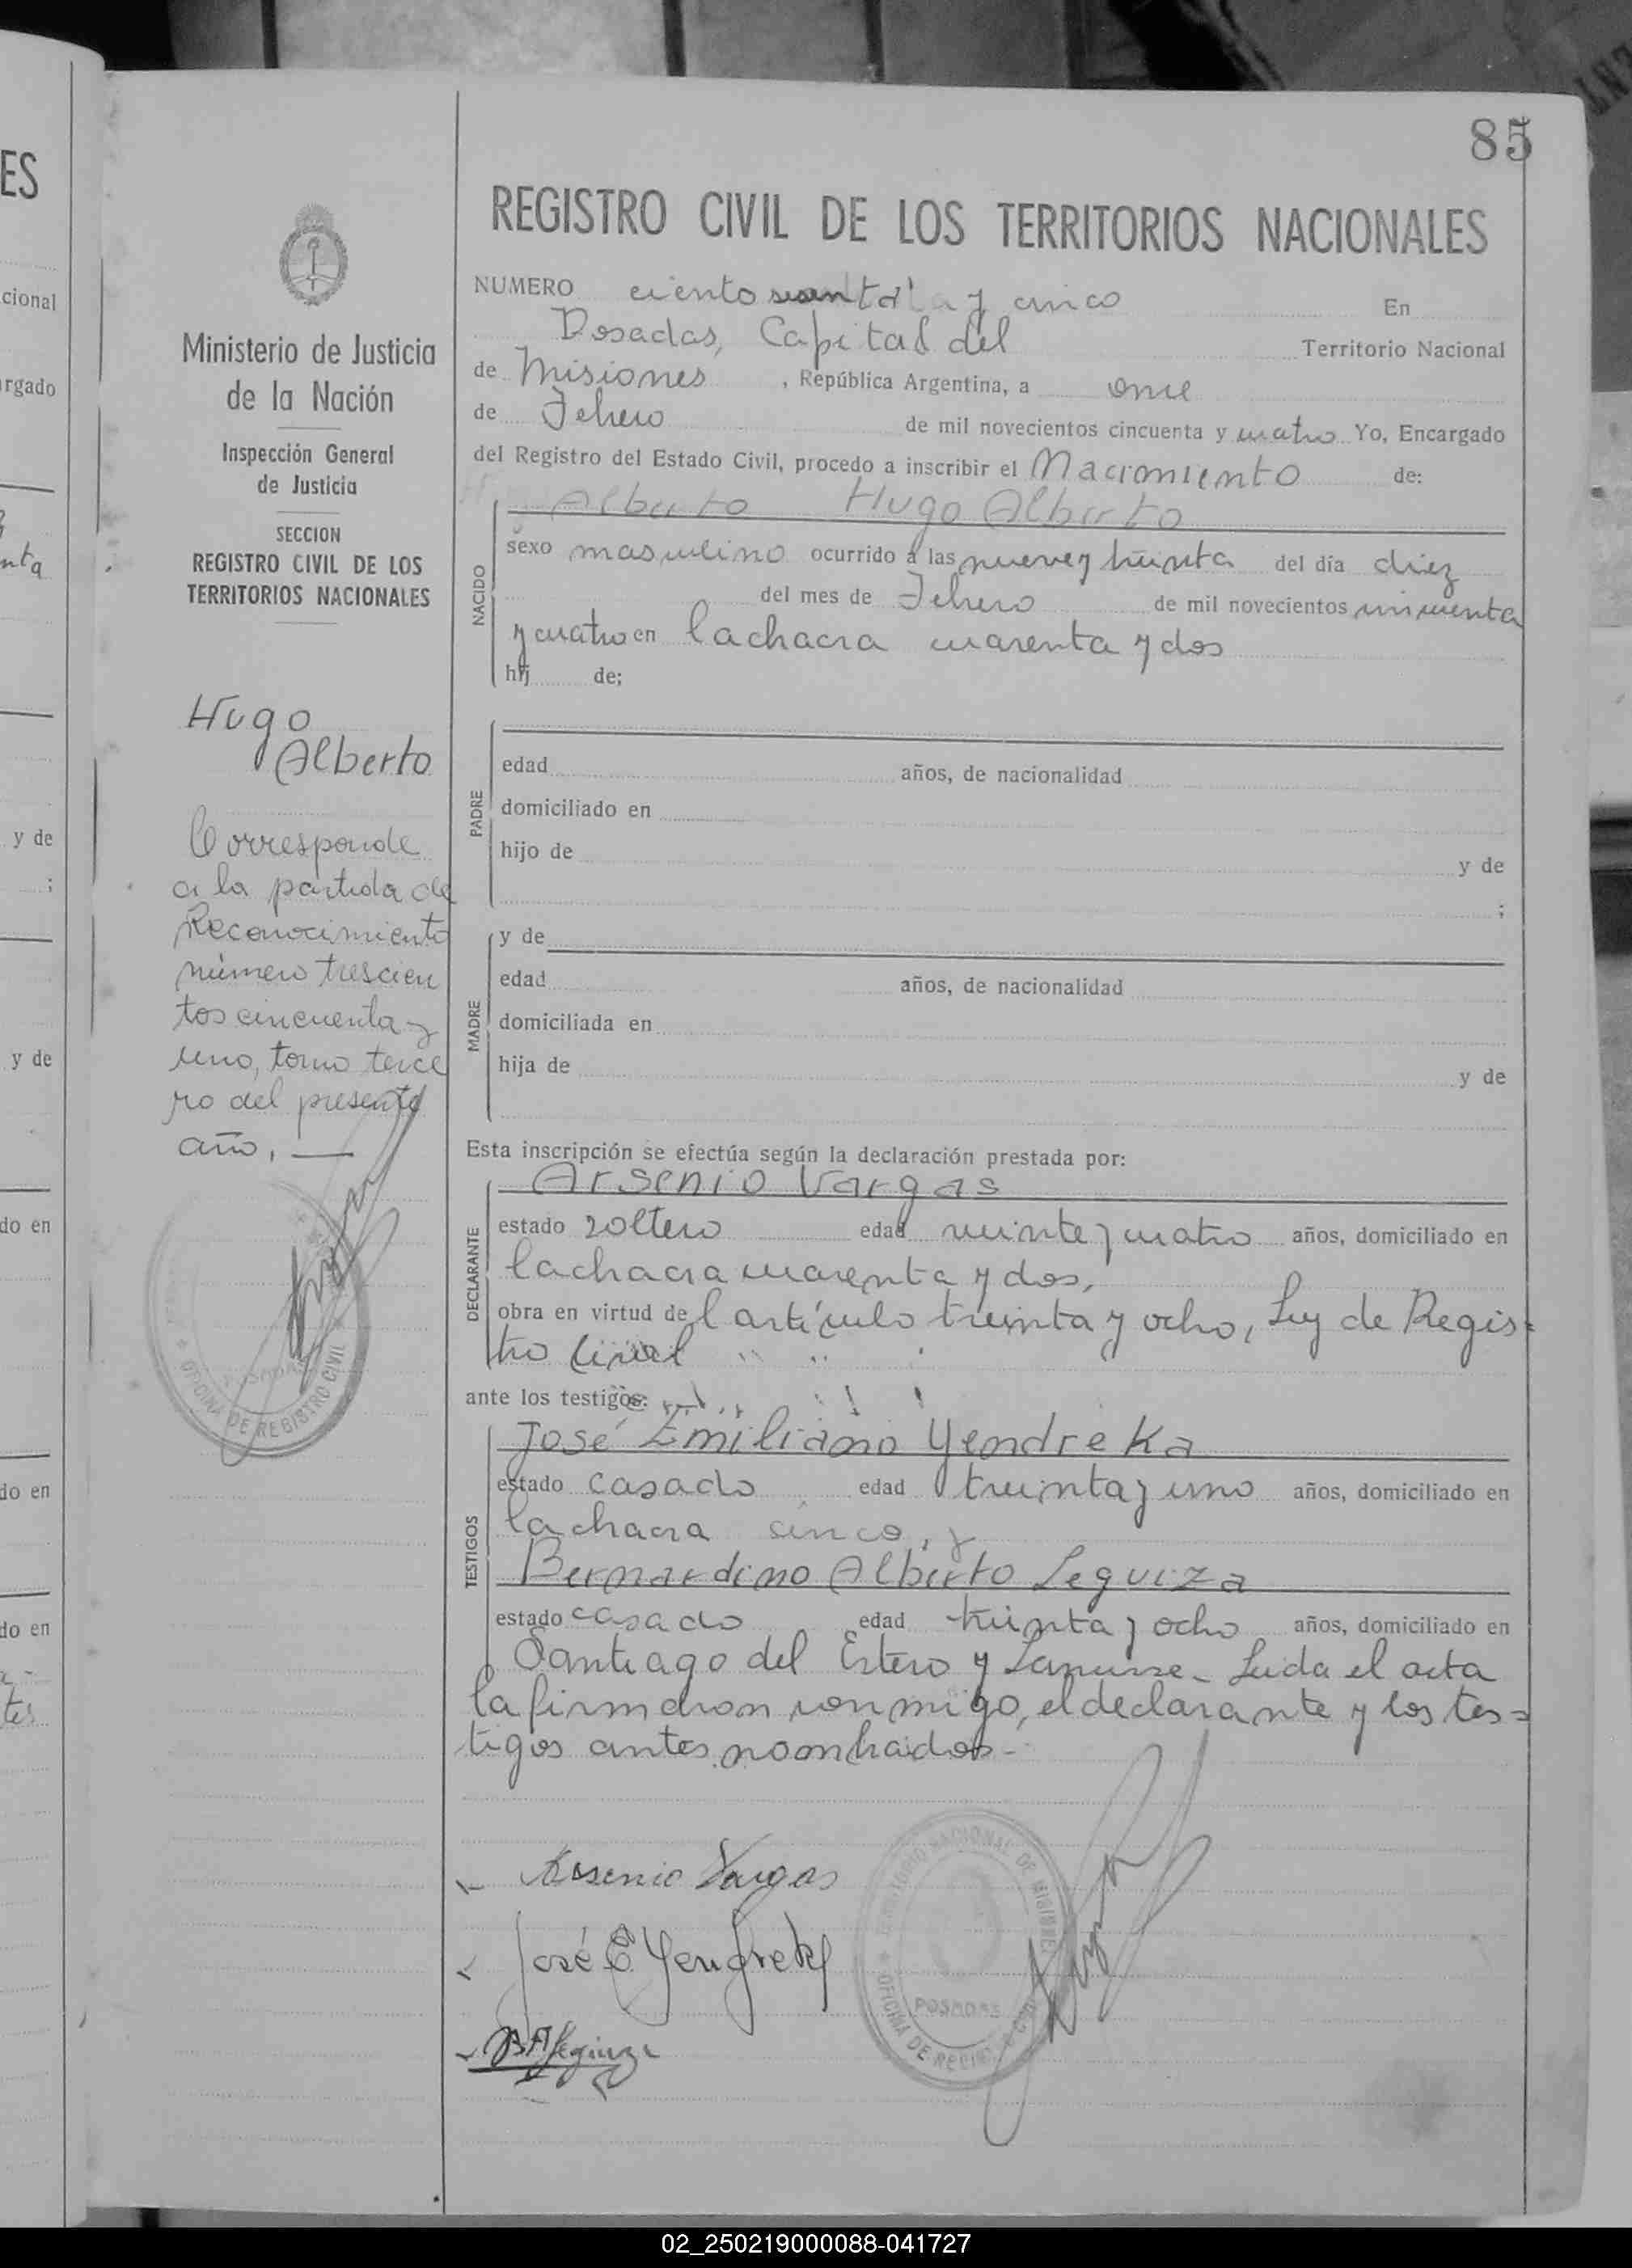 85
ES
cional
rgado
nta
y de
;
y de
do en
do en
do en
tes
Ministerio de Justicia
de la Nación
Inspección General
de Justicia
SECCION
REGISTRO CIVIL DE LOS
TERRITORIOS NACIONALES
Hugo
Alberto
Corresponde
a la partida de
Reconocimiento
número trescien
tos cincuenta y
uno, tomo terce
ro del presente
año, —
OFICINA DE REGISTRO CIVIL
REGISTRO CIVIL DE LOS TERRITORIOS NACIONALES
NUMERO ciento y cinco En
Posadas, Capital del Territorio Nacional
de Misiones , República Argentina, a once
de Febrero de mil novecientos cincuenta y cuatro Yo, Encargado
del Registro del Estado Civil, procedo a inscribir el Nacimiento de:
Alberto Hugo Alberto
NACIDO
sexo masculino ocurrido a las nueve y treinta del día diez
del mes de Febrero de mil novecientos cincuenta
y cuatro en la chacra cuarenta y dos
hij de;
PADRE
edad años, de nacionalidad
domiciliado en
hijo de y de
;
MADRE
y de
edad años, de nacionalidad
domiciliada en
hija de y de
Esta inscripción se efectúa según la declaración prestada por:
DECLARANTE
Arsenio Vargas
estado soltero edad veinte y cuatro años, domiciliado en
la chacra cuarenta y dos,
obra en virtud del artículo treinta y ocho, Ley de Regis-
tro Civil
ante los testigos:
TESTIGOS
José Emiliano Yendreka
estado casado edad treinta y uno años, domiciliado en
la chacra cinco, y
Bernardino Alberto Leguiza
estado casado edad treinta y ocho años, domiciliado en
Santiago del Estero y Lanusse - Leida el acta
la firmaron conmigo, el declarante y los tes=
tigos antes nombrados -
Arsenio Vargas
José E Yendreka
B A Leguiza
TERRITORIO NACIONAL DE MISIONES
POSADAS
OFICINA DE REGISTRO CIVIL
02_250219000088-041727